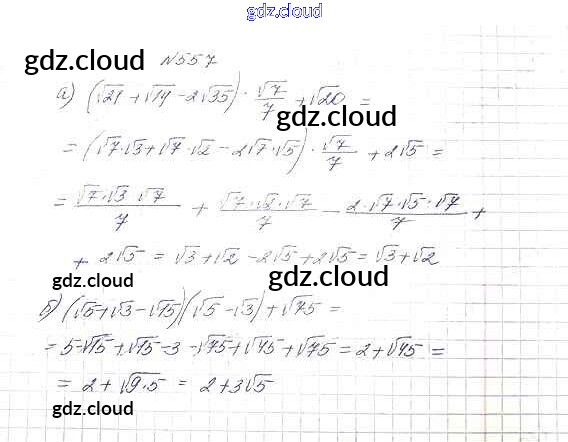 gdz.cloud
gdz.cloud №557
а) (√21 + √14 - 2√35) · √7/7 + √20 =
gdz.cloud
= (√7·√3 + √7·√2 - 2√7·√5) · √7/7 + 2√5 =
= √7·√3·√7/7 + √7·√2·√7/7 - 2·√7·√5·√7/7 +
+ 2√5 = √3 + √2 - 2√5 + 2√5 = √3 + √2
gdz.cloud gdz.cloud
б) (√5 + √3 - √15)(√5 - √3) + √75 =
= 5 - √15 + √15 - 3 - √75 + √45 + √75 = 2 + √45 =
= 2 + √9·5 = 2 + 3√5
gdz.cloud gdz.cloud